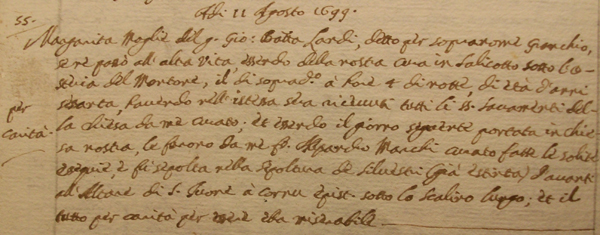 Adi 11 Agosto 1699.
55. Margarita Moglie del q. Gio: Batta Lardi, detto per sopranome
se ne passò all'altra vita essendo della nostra cura in Salicotto sotto l'o=
steria del Montone, il dì soprad.o à hore 4 di notte, di età d'anni
sessanta, havendo nell'istessa sera ricevuti tutti li SS. Sacramenti del=
per carità. la Chiesa da me Curato; et essendo il giorno seguente portata in chie=
sa nostra, le furono da me P. Alpardio Marchi Curato fatte le solite
esequie, e fù sepolta nella sepoltura de Silvestri (già estinta) d'avanti
all'Altare di S. Iuone à cornu epist. sotto lo scalino lungo; et il
tutto per carità per essere miserabile